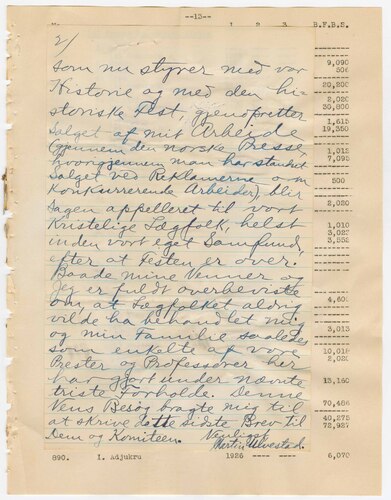 --13--
1 2 3 B.F.B.S.
2/
som nu styrer med vor
Historie og med den hi-
storiske Fest, gjenopretter
Salget af mit Arbeide
(gjennem den norske Presse
hvorigjennem man har standset
Salget ved Reklamerne om
Konkurrerende Arbeider), blir
Sagen appelleret til vort
Kristelige Lægfolk, helst
inden vort eget Samfund,
efter at Festen er over.
Baade mine Venner og
Jeg er fuldt overbeviste
om, at Lægfolket aldrig
vilde ha behandlet mig
og min Familie saaledes
som enkelte af vore
Prester og Professorer her
har gjort under nævnte
triste Forholde. Denne
Vens Besøg bragte mig til
at skrive dette sidste Brev til
Dem og Komiteen. Venligst
Martin Ulvestad.
9,090
506
20,200
2,020
30,800
1,615
19,350
1,012
7,095
500
2,020
1,010
3,027
3,552
4,602
3,015
10,018
2,020
15,160
70,486
40,275
72,927
890. I. Adjukru 1926 -- --- --- 6,070